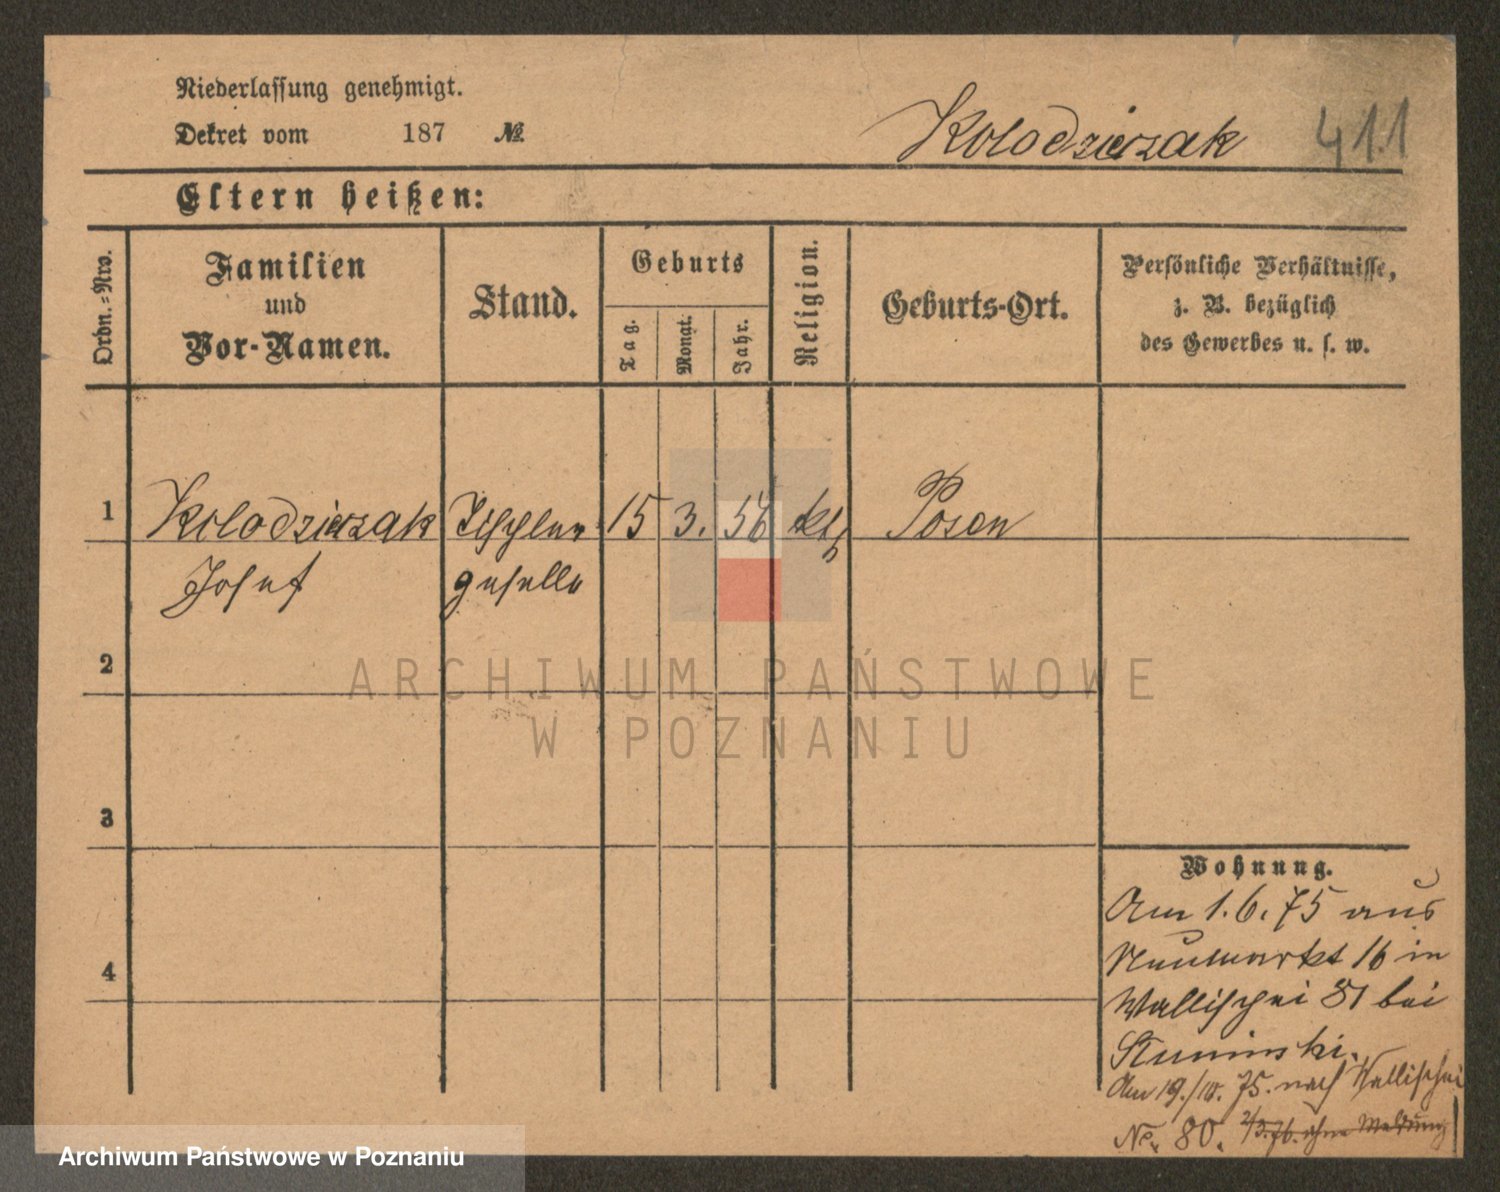 Niederlassung genehmigt.
Dekret vom 187 №
Kolodzierzak 411
Eltern heißen:
Ordn.-Nro.
Familien
und
Vor-Namen.
Stand.
Geburts
Tag.
Monat.
Jahr.
Religion.
Geburts-Ort.
Persönliche Verhältnisse,
z. B. bezüglich
des Gewerbes u. s. w.
1 Kolodzierzak Tischler 15 3. 56 kth Posen
Josef geselle
2
3
4
Wohnung.
Am 1.6.75 aus
Neumarkt 16 in
Wallischei 81 bei
Am 19./10. 75. nach Wallischei
No. 80. 2/3.76. ohne Meldung
ARCHIWUM PAŃSTWOWE
W POZNANIU
Archiwum Państwowe w Poznaniu